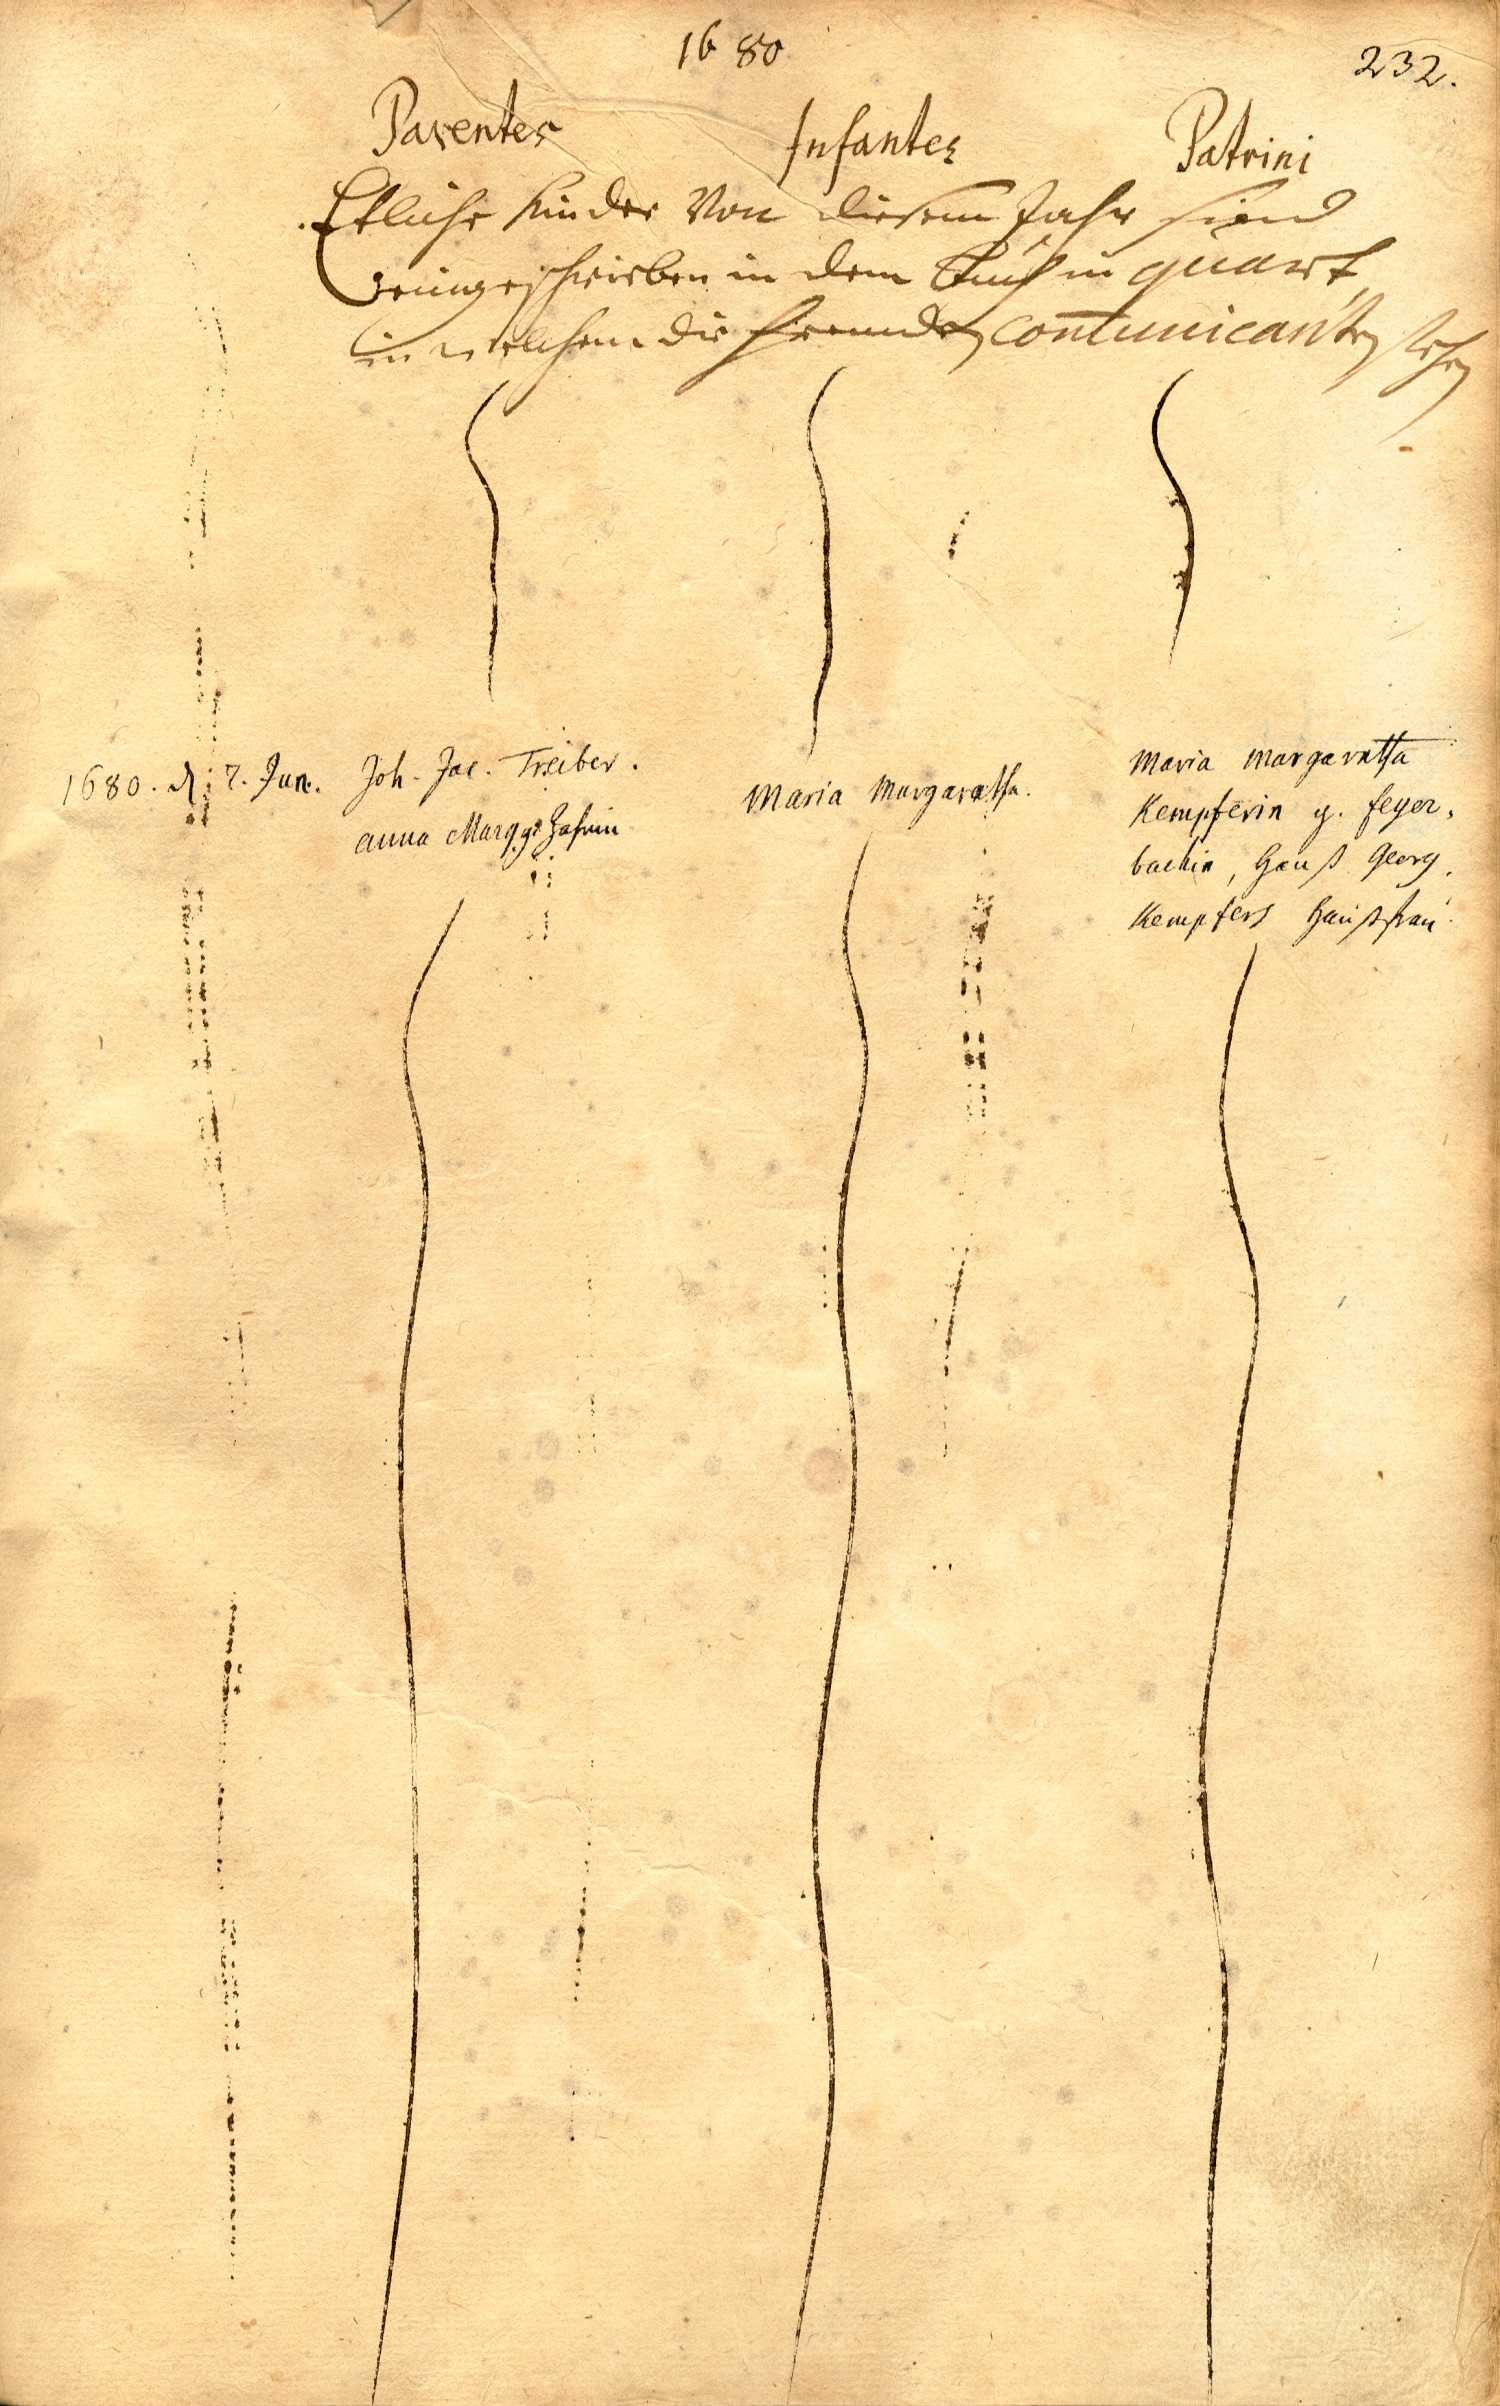 1680
232.
Parentes Infantes Patrini
Etliche Kinder Von diesem Jahr sind
eingeschrieben in dem Buch in quart
in welchem die fremden Communicanten stehen
1680. d. 7. Jun. Joh. Jac. Treiber. Maria Margaretha. Maria Margaretha
anna Marg. Kempferin g. feyer-
bachin, Hanß Georg
Kempfers Haußfrau.